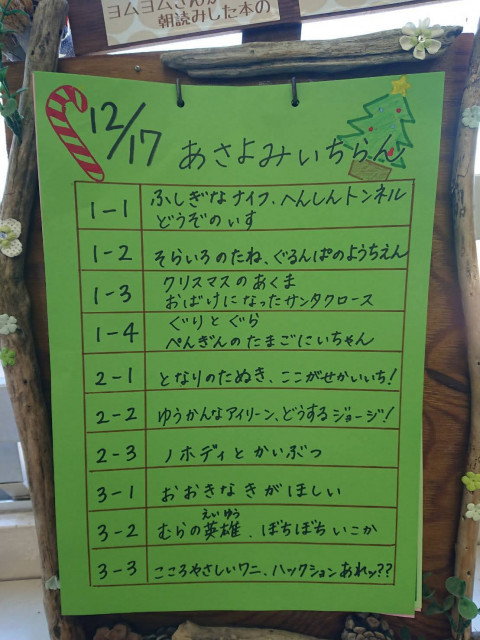 ヨムヨムさんが
朝読みした本の
12/17
あさよみいちらん
1-1 ふしぎなナイフ、へんしんトンネル
どうぞのいす
1-2 そらいろのたね、ぐるんぱのようちえん
1-3 クリスマスのあくま
おばけになったサンタクロース
1-4 ぐりとぐら
ぺんぎんのたまごにいちゃん
2-1 となりのたぬき、ここがせかいいち!
2-2 ゆうかんなアイリーン、どうするジョージ!
2-3 ノホディとかいぶつ
3-1 おおきなきがほしい
えいゆう
3-2 むらの英雄、ぼちぼちいこか
3-3 こころやさしいワニ、ハックションあれッ??